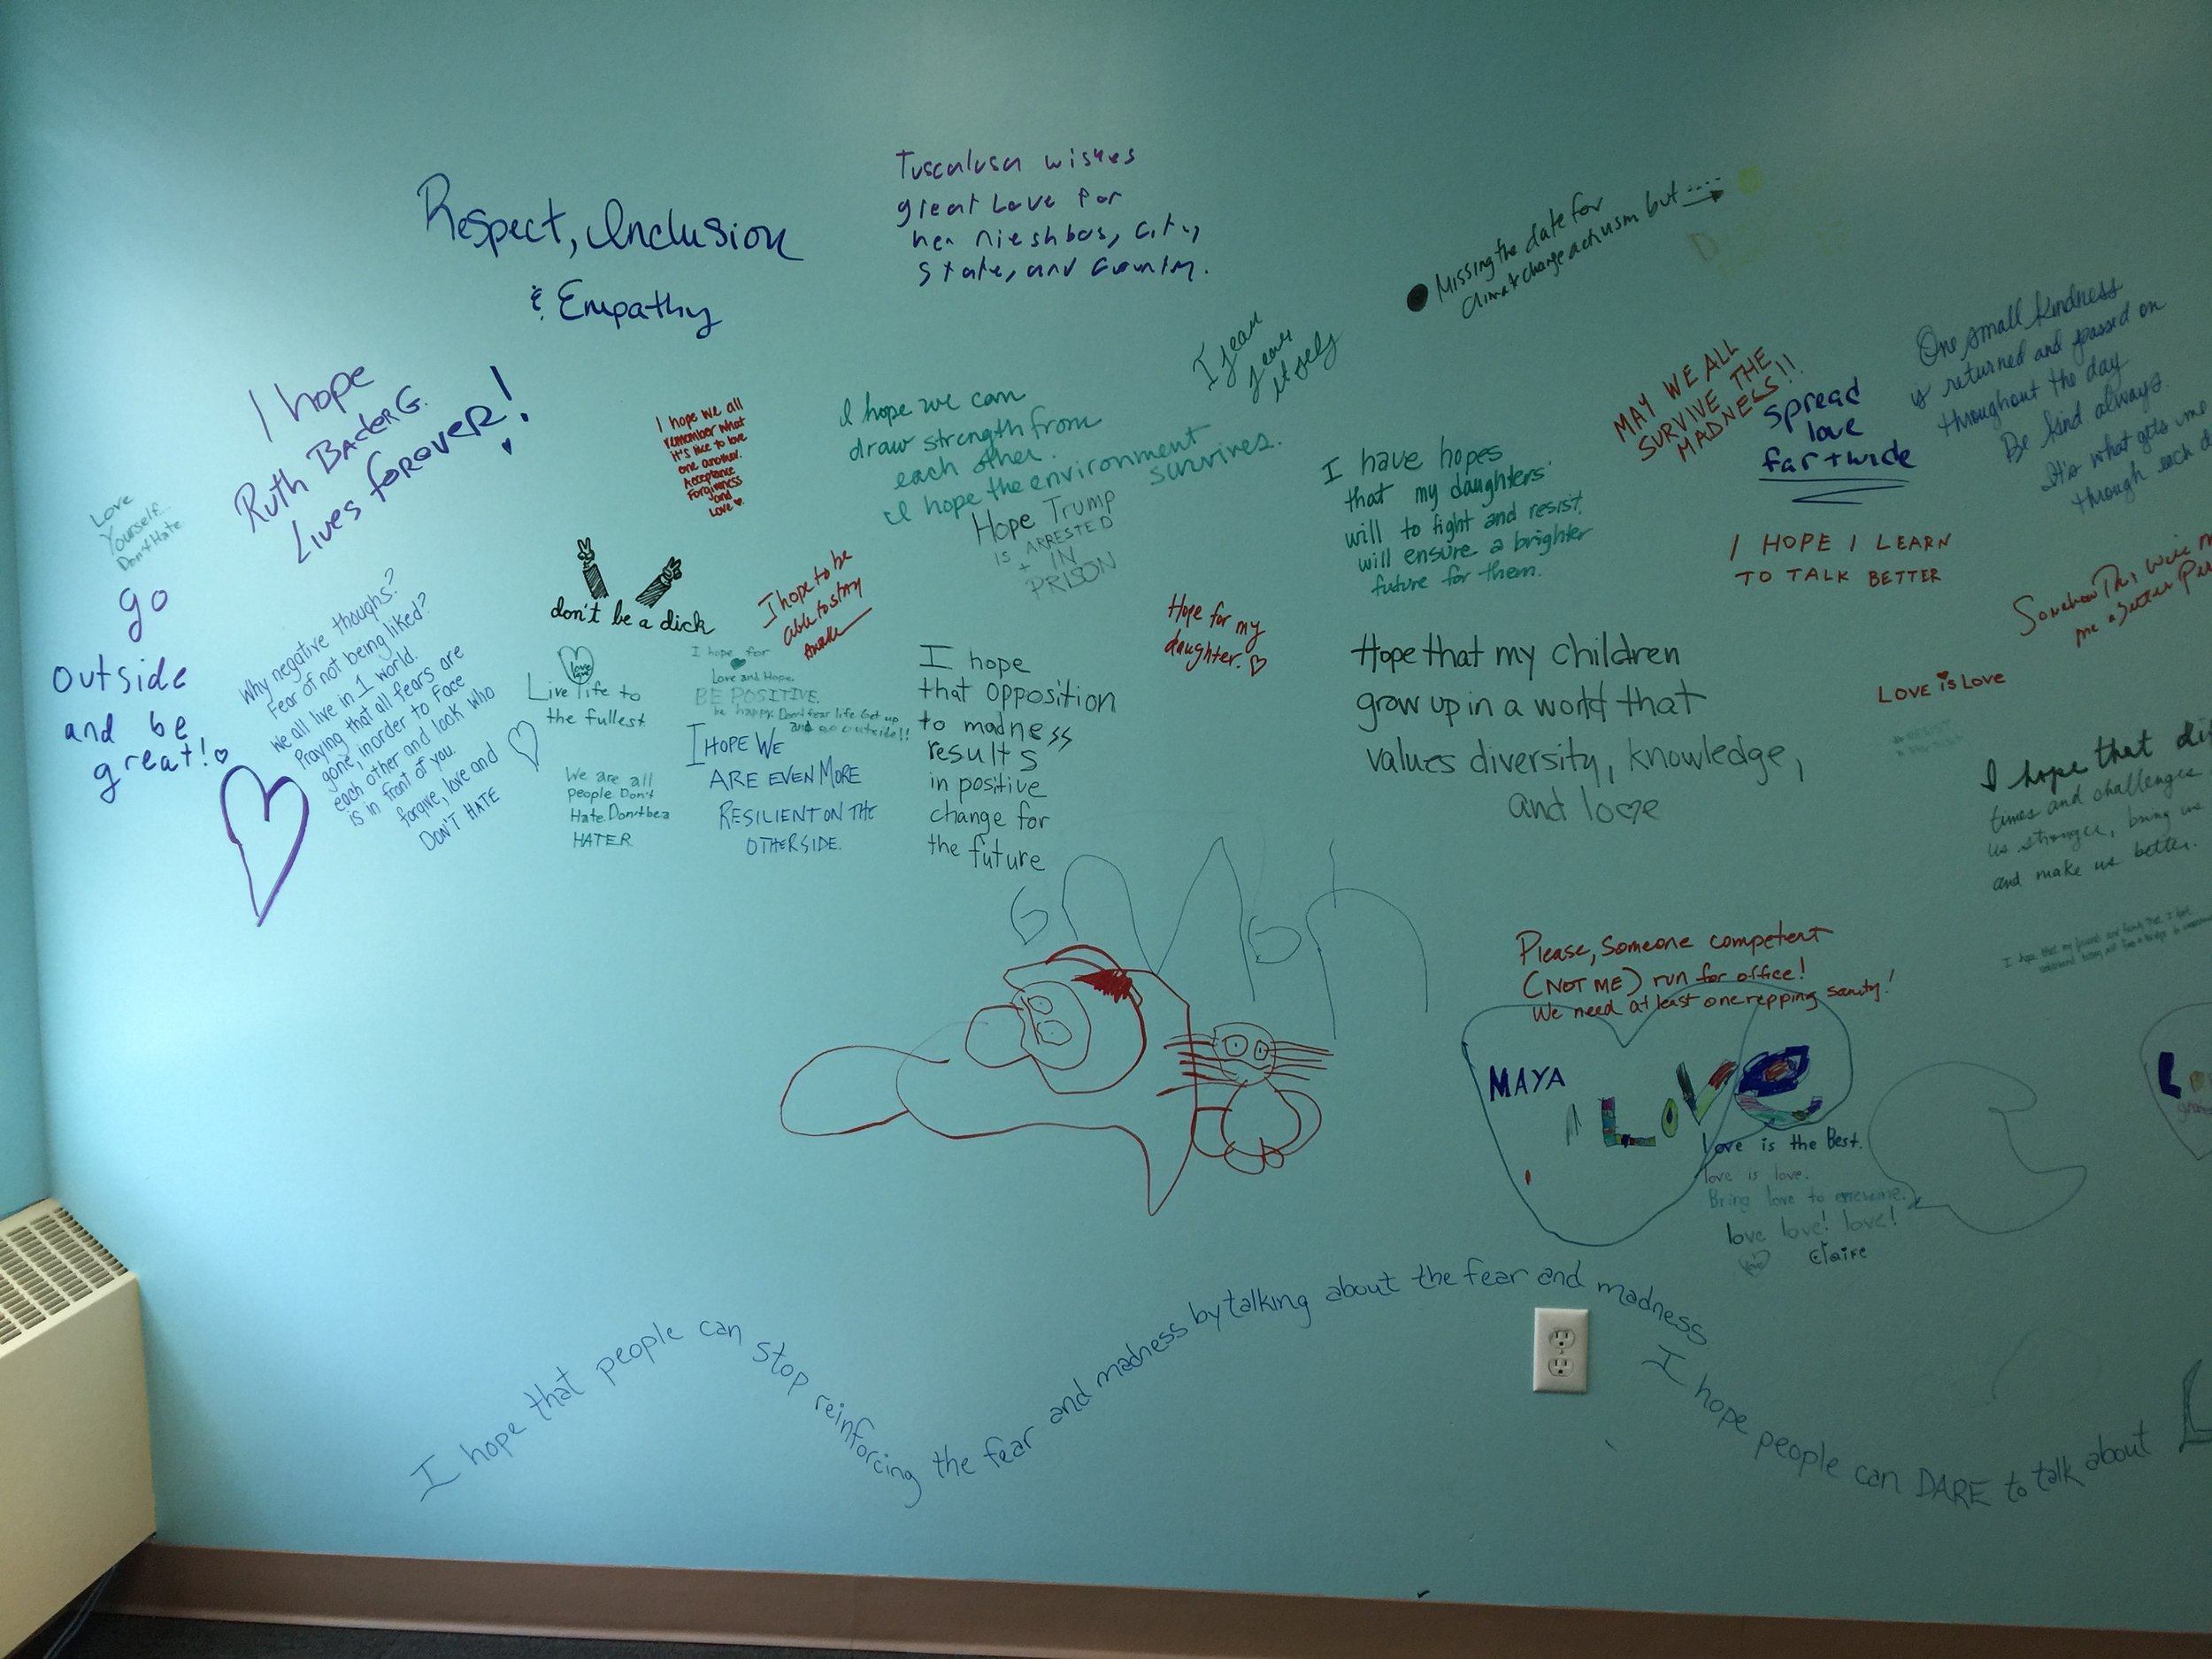 Respect, Inclusion
& Empathy
Tuscalusa wishes
great Love for
her nieshbos, city,
State, and Country.
Missing the date for
climate change activism but
I fear
fear
itself
I hope
Ruth Bader G.
Lives forever!
I hope we all
remember what
it's like to love
one another.
Acceptance
Forgiveness
and
Love
I hope we can
draw strength from
each other.
I hope the environment
survives.
Hope Trump
is ARRESTED
+ IN
PRISON
I have hopes
that my daughters'
will to fight and resist
will ensure a brighter
future for them.
MAY WE ALL
SURVIVE THE
MADNESS!!
Spread
love
far + wide
One small kindness
is returned and passed on
throughout the day
Be kind always.
It's what gets me
through each
I HOPE I LEARN
TO TALK BETTER
Love
Yourself..
Don't Hate
go
outside
and be
great!
Why negative thoughs?
Fear of not being liked?
We all live in 1 world.
Praying that all fears are
gone, inorder to Face
each other and look who
is in front of you.
forgive, love and
DON'T HATE
don't be a dick
I hope to be
able to stay
Awake
love
Live life to
the fullest
I hope for
Love and Hope.
BE POSITIVE.
be happy. Don't fear life Get up
and go outside!!
We are all
people Don't
Hate. Don't be a
HATER.
I HOPE WE
ARE EVEN MORE
RESILIENT ON THE
OTHERSIDE.
I hope
that opposition
to madness
results
in positive
change for
the future
Hope for my
daughter.
Hope that my children
grow up in a world that
values diversity, knowledge,
and love
Somehow This will
me a better
LOVE is LOVE
# RESIST
I hope that
times and challenges
us stronger, bring us
and make us better.
I hope that my
Please, Someone competent
(NOT ME) run for office!
We need at least one repping sanity!
MAYA
LOVe
Love is the Best.
love is love.
Bring love to
love love! love!
love
Claire
I hope that people can stop reinforcing the fear and madness by talking about the fear and madness
I hope people can DARE to talk about